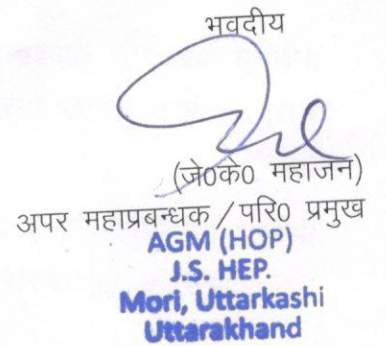 भवदीय
(जे0के0 महाजन)
अपर महाप्रबन्धक / परि0 प्रमुख
AGM (HOP)
J.S. HEP.
Mori, Uttarkashi
Uttarakhand